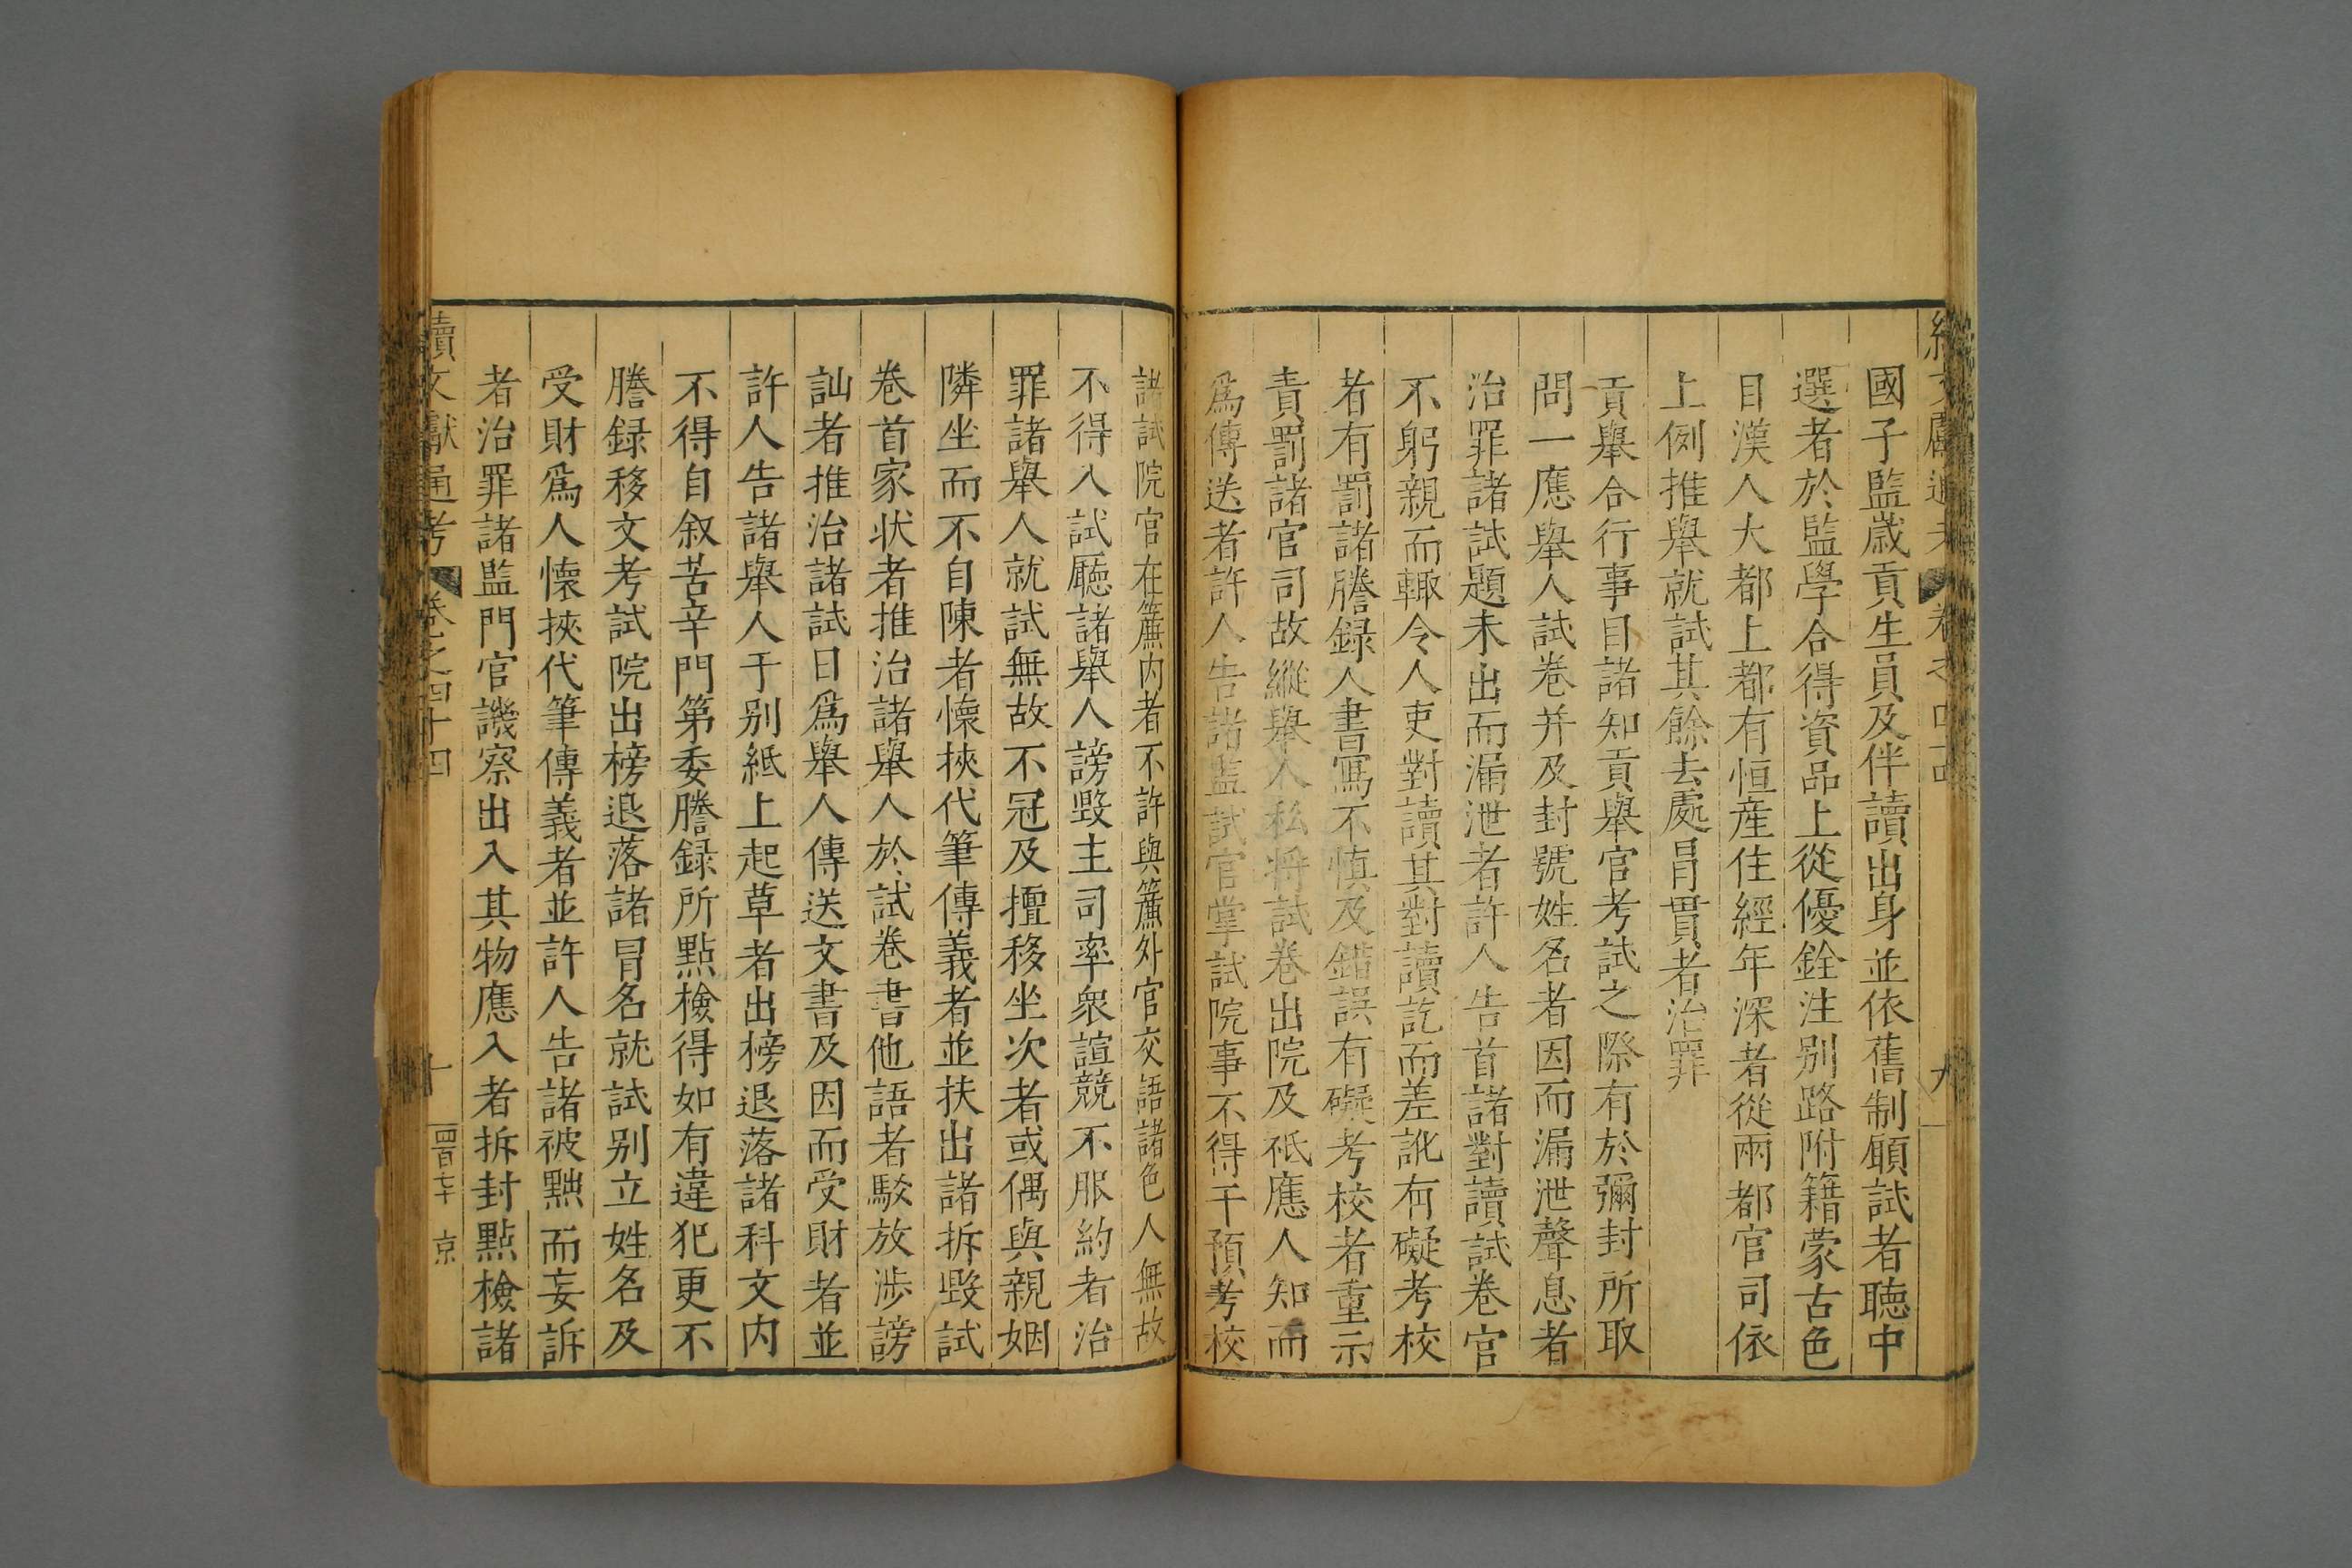 國子監歲貢生員及伴讀出身並依舊制願試者聽中
選者於監學合得資品上從優銓注别路附籍蒙古色
目漢人大都上都有恒産住經年深者從兩都官司依
上例推舉就試其餘去處冒貫者治罪
貢舉合行事目諸知貢舉官考試之際有於彌封所取
問一應舉人試卷并及封號姓名者因而漏泄聲息者
治罪諸試題未出而漏泄者許人告首諸對讀試卷官
不躬親而輙令人吏對讀其對讀訖而差訛有礙考校
者有罰諸謄録人書寫不慎及錯誤有礙考校者重示
責罰諸官司故縱舉人私將試卷出院及祗應人知而
爲傳送者許人告諸監試官掌試院事不得干預考校
諸試院官在簾内者不許與簾外官交語諸色人無故
不得入試廳諸舉人謗毁主司率衆諠競不服約者治
罪諸舉人就試無故不冠及擅移坐次者或偶與親姻
隣坐而不自陳者懷挾代筆傳義者並扶出諸拆毁試
卷首家狀者推治諸舉人於試卷書他語者駁放涉謗
訕者推治諸試日爲舉人傳送文書及因而受財者並
許人告諸舉人于别紙上起草者出榜退落諸科文内
不得自叙苦辛門第委謄録所點檢得如有違犯更不
謄録移文考試院出榜退落諸冒名就試别立姓名及
受財爲人懷挾代筆傳義者並許人告諸被黜而妄訴
者治罪諸監門官譏察出入其物應入者拆封點檢諸
續文獻通考 卷之四十四 十 四百七十 京